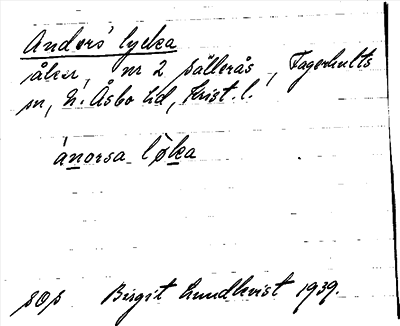 Anders' lycka
åker, nr 2 Källerås, Fagerhults
sn, N. Åsbo hd, Krist. l.
ánorsa løka
Birgit Lundkvist 1939.